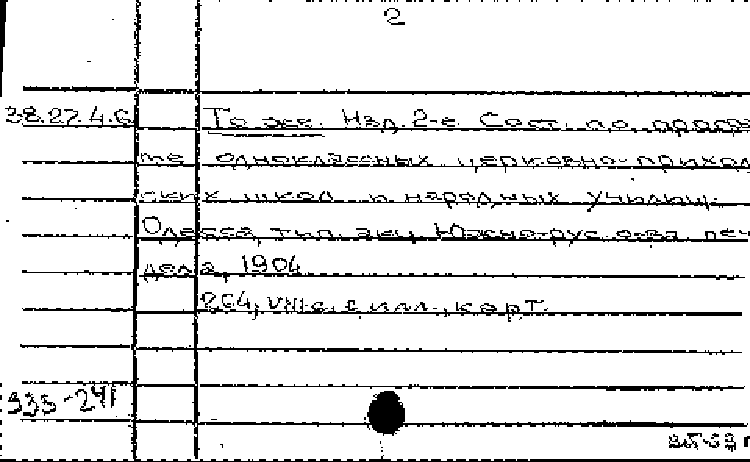 2
38.27.4.6 То же. Изд. 2-е. Сост. по програм
ме одноклассных церковно-приход
ских школ и народных училищ.
Одесса, тип. акц. Южно-рус. о-ва печ.
дела, 1904
264, VIII с. с илл., карт.
935-241